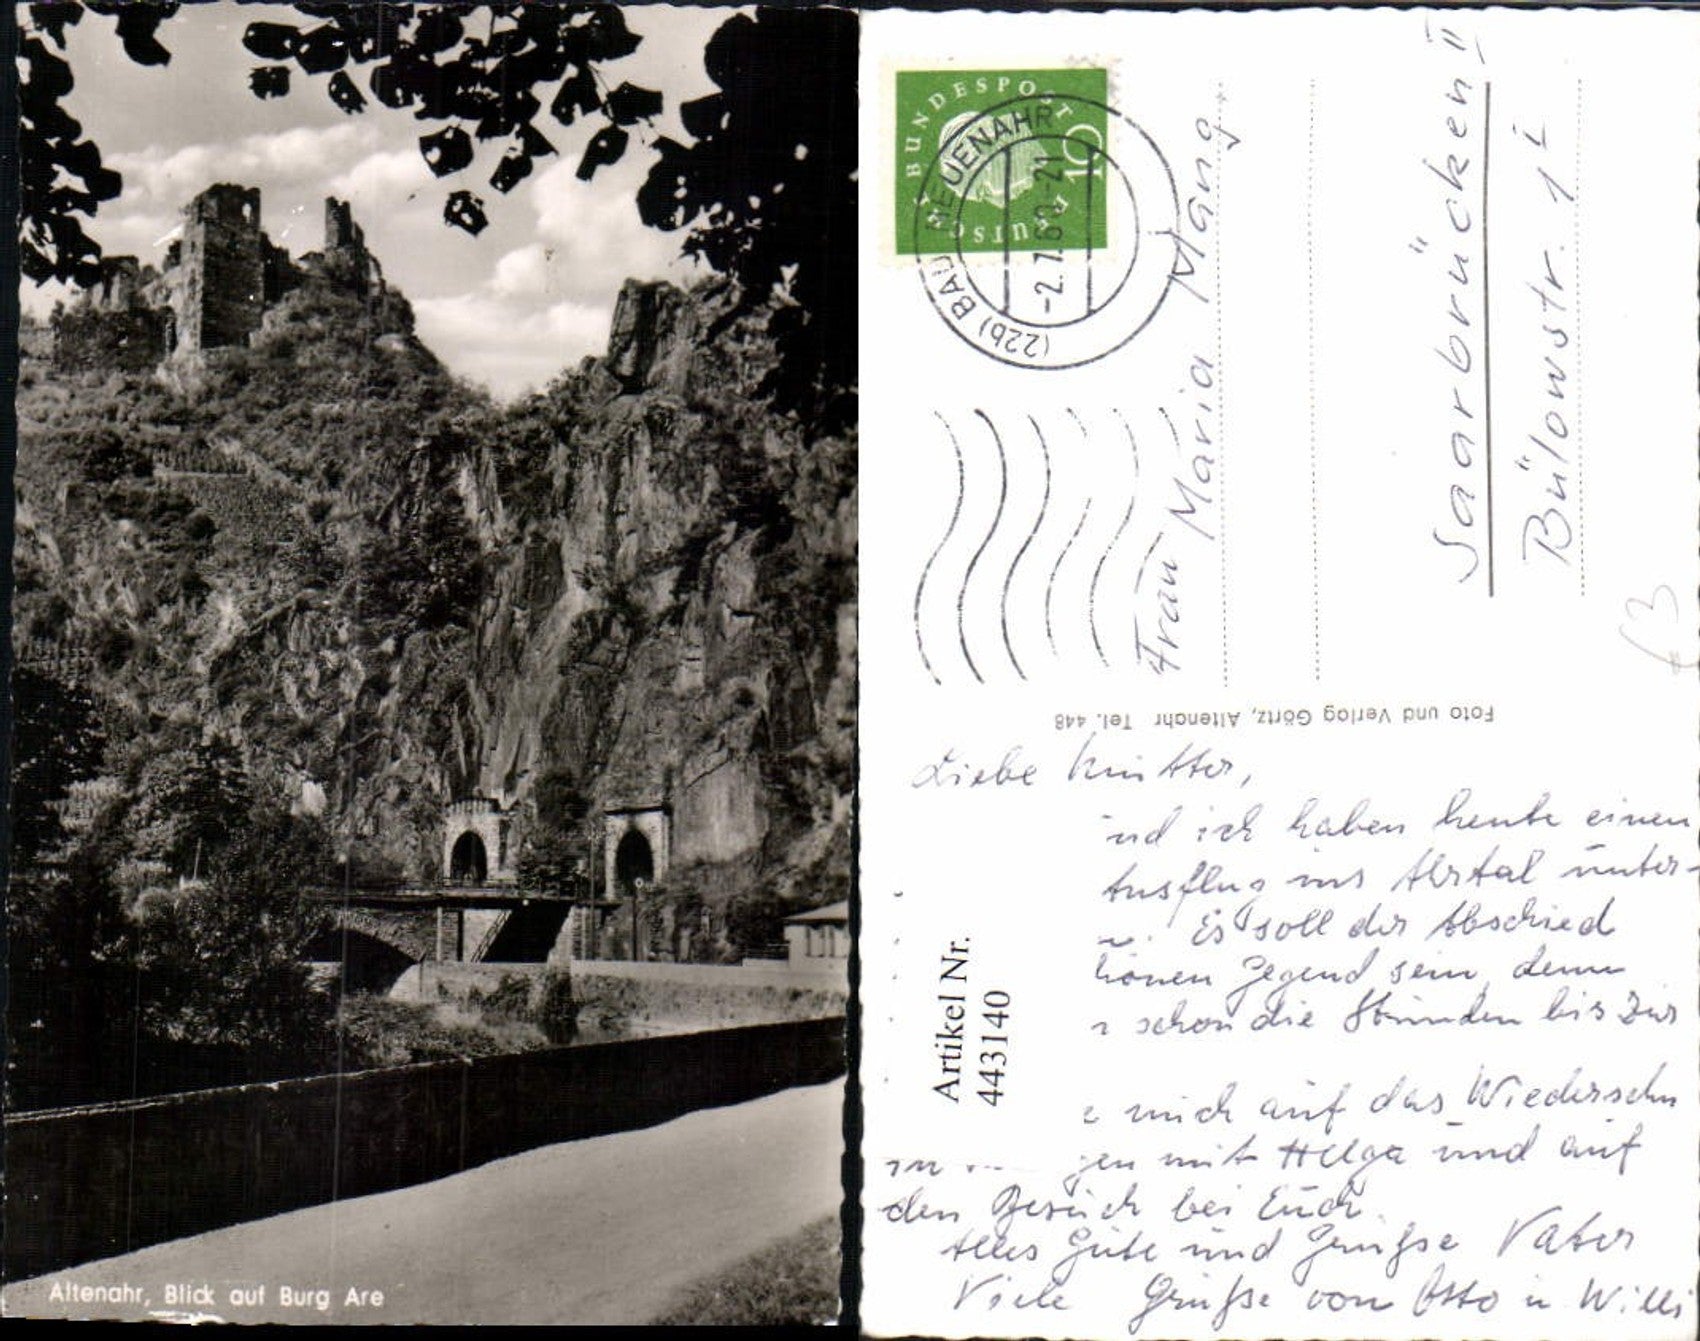 Altenahr, Blick auf Burg Are
BUNDESPOST
10
(22b) BAD NEUENAHR
-2.7.60-21
Frau Maria Mang
Saarbrücken II
Bülowstr. 1 I
Foto und Verlag Görtz, Altenahr Tel. 448
Liebe Mutter,
und ich haben heute einen
Ausflug ins Ahrtal unter-
Es soll der Abschied
hönen Gegend sein, denn
schon die Stunden bis zur
Artikel Nr.
443140
mich auf das Wiedersehn
gen mit Helga und auf
den Besuch bei Euch.
Alles Gute und Grüße Vater
Viele Grüße von Otto u Willi